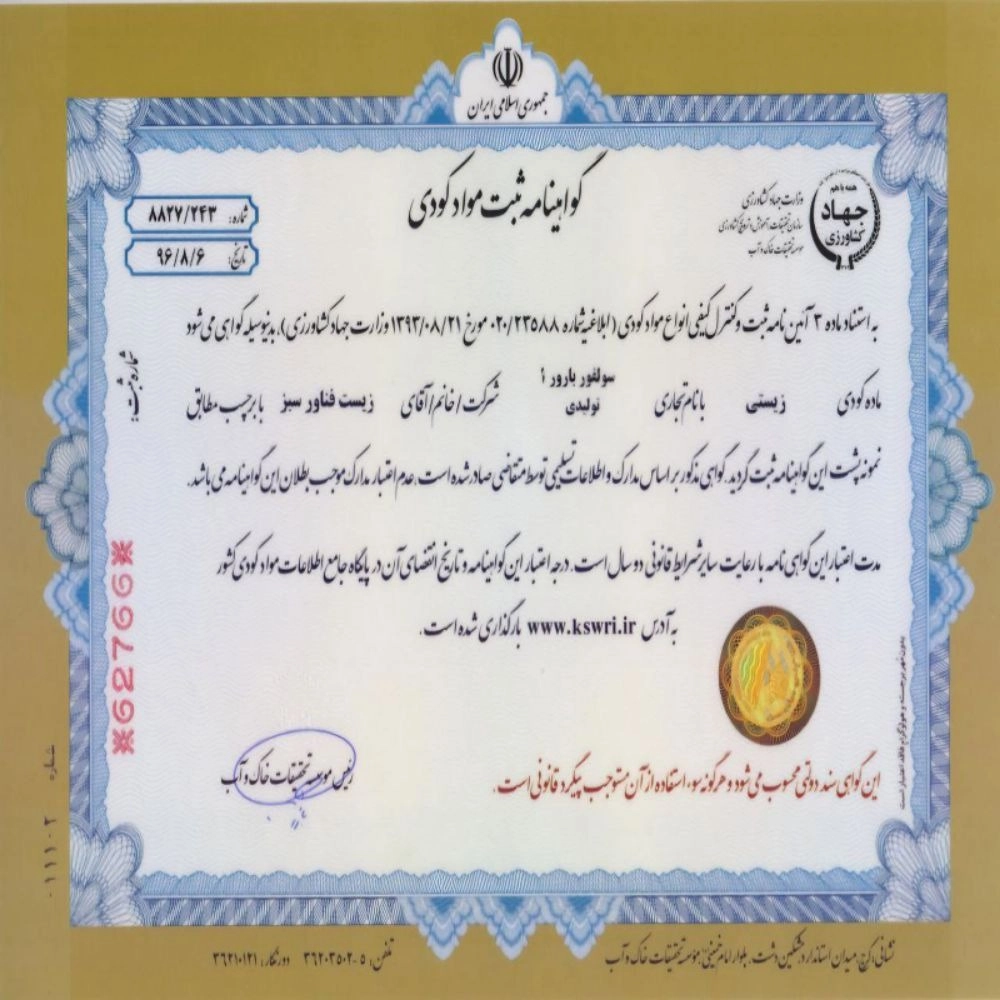 جمهوری اسلامی ایران
گواهینامه ثبت مواد کودی
همه با هم
جهاد
کشاورزی
وزارت جهاد کشاورزی
سازمان تحقیقات، آموزش و ترویج کشاورزی
موسسه تحقیقات خاک و آب
شماره: ۸۸۲۷/۲۴۳
تاریخ: ۹۶/۸/۶
به استناد ماده ۳ آئین نامه ثبت و کنترل کیفی انواع مواد کودی (ابلاغیه شماره ۰۲۰/۲۳۵۸۸ مورخ ۱۳۹۳/۰۸/۲۱ وزارت جهاد کشاورزی)، بدینوسیله گواهی می شود
ماده کودی زیستی با نام تجاری سولفور بارور ۱ تولیدی شرکت/خانم/آقای زیست فناور سبز با برچسب مطابق
نمونه پشت این گواهینامه ثبت گردید. گواهی مذکور بر اساس مدارک و اطلاعات تسلیمی توسط متقاضی صادر شده است. عدم اعتبار مدارک موجب بطلان این گواهینامه می باشد.
مدت اعتبار این گواهی نامه با رعایت سایر شرایط قانونی دو سال است. درجه اعتبار این گواهینامه و تاریخ انقضای آن در پایگاه جامع اطلاعات مواد کودی کشور
به آدرس www.kswri.ir بارگذاری شده است.
شماره ثبت:
※62766※
بدون مهر برجسته و هولوگرام فاقد اعتبار است
رئیس موسسه تحقیقات خاک و آب
این گواهی سند دولتی محسوب می شود و هرگونه سوء استفاده از آن مستوجب پیگرد قانونی است.
شماره ۰۱۱۱۰۲
نشانی: کرج، میدان استاندارد، مشکین دشت، بلوار امام خمینی، مؤسسه تحقیقات خاک و آب
تلفن: ۵-۳۶۲۰۳۵۰۲ دورنگار: ۳۶۲۱۰۱۲۱